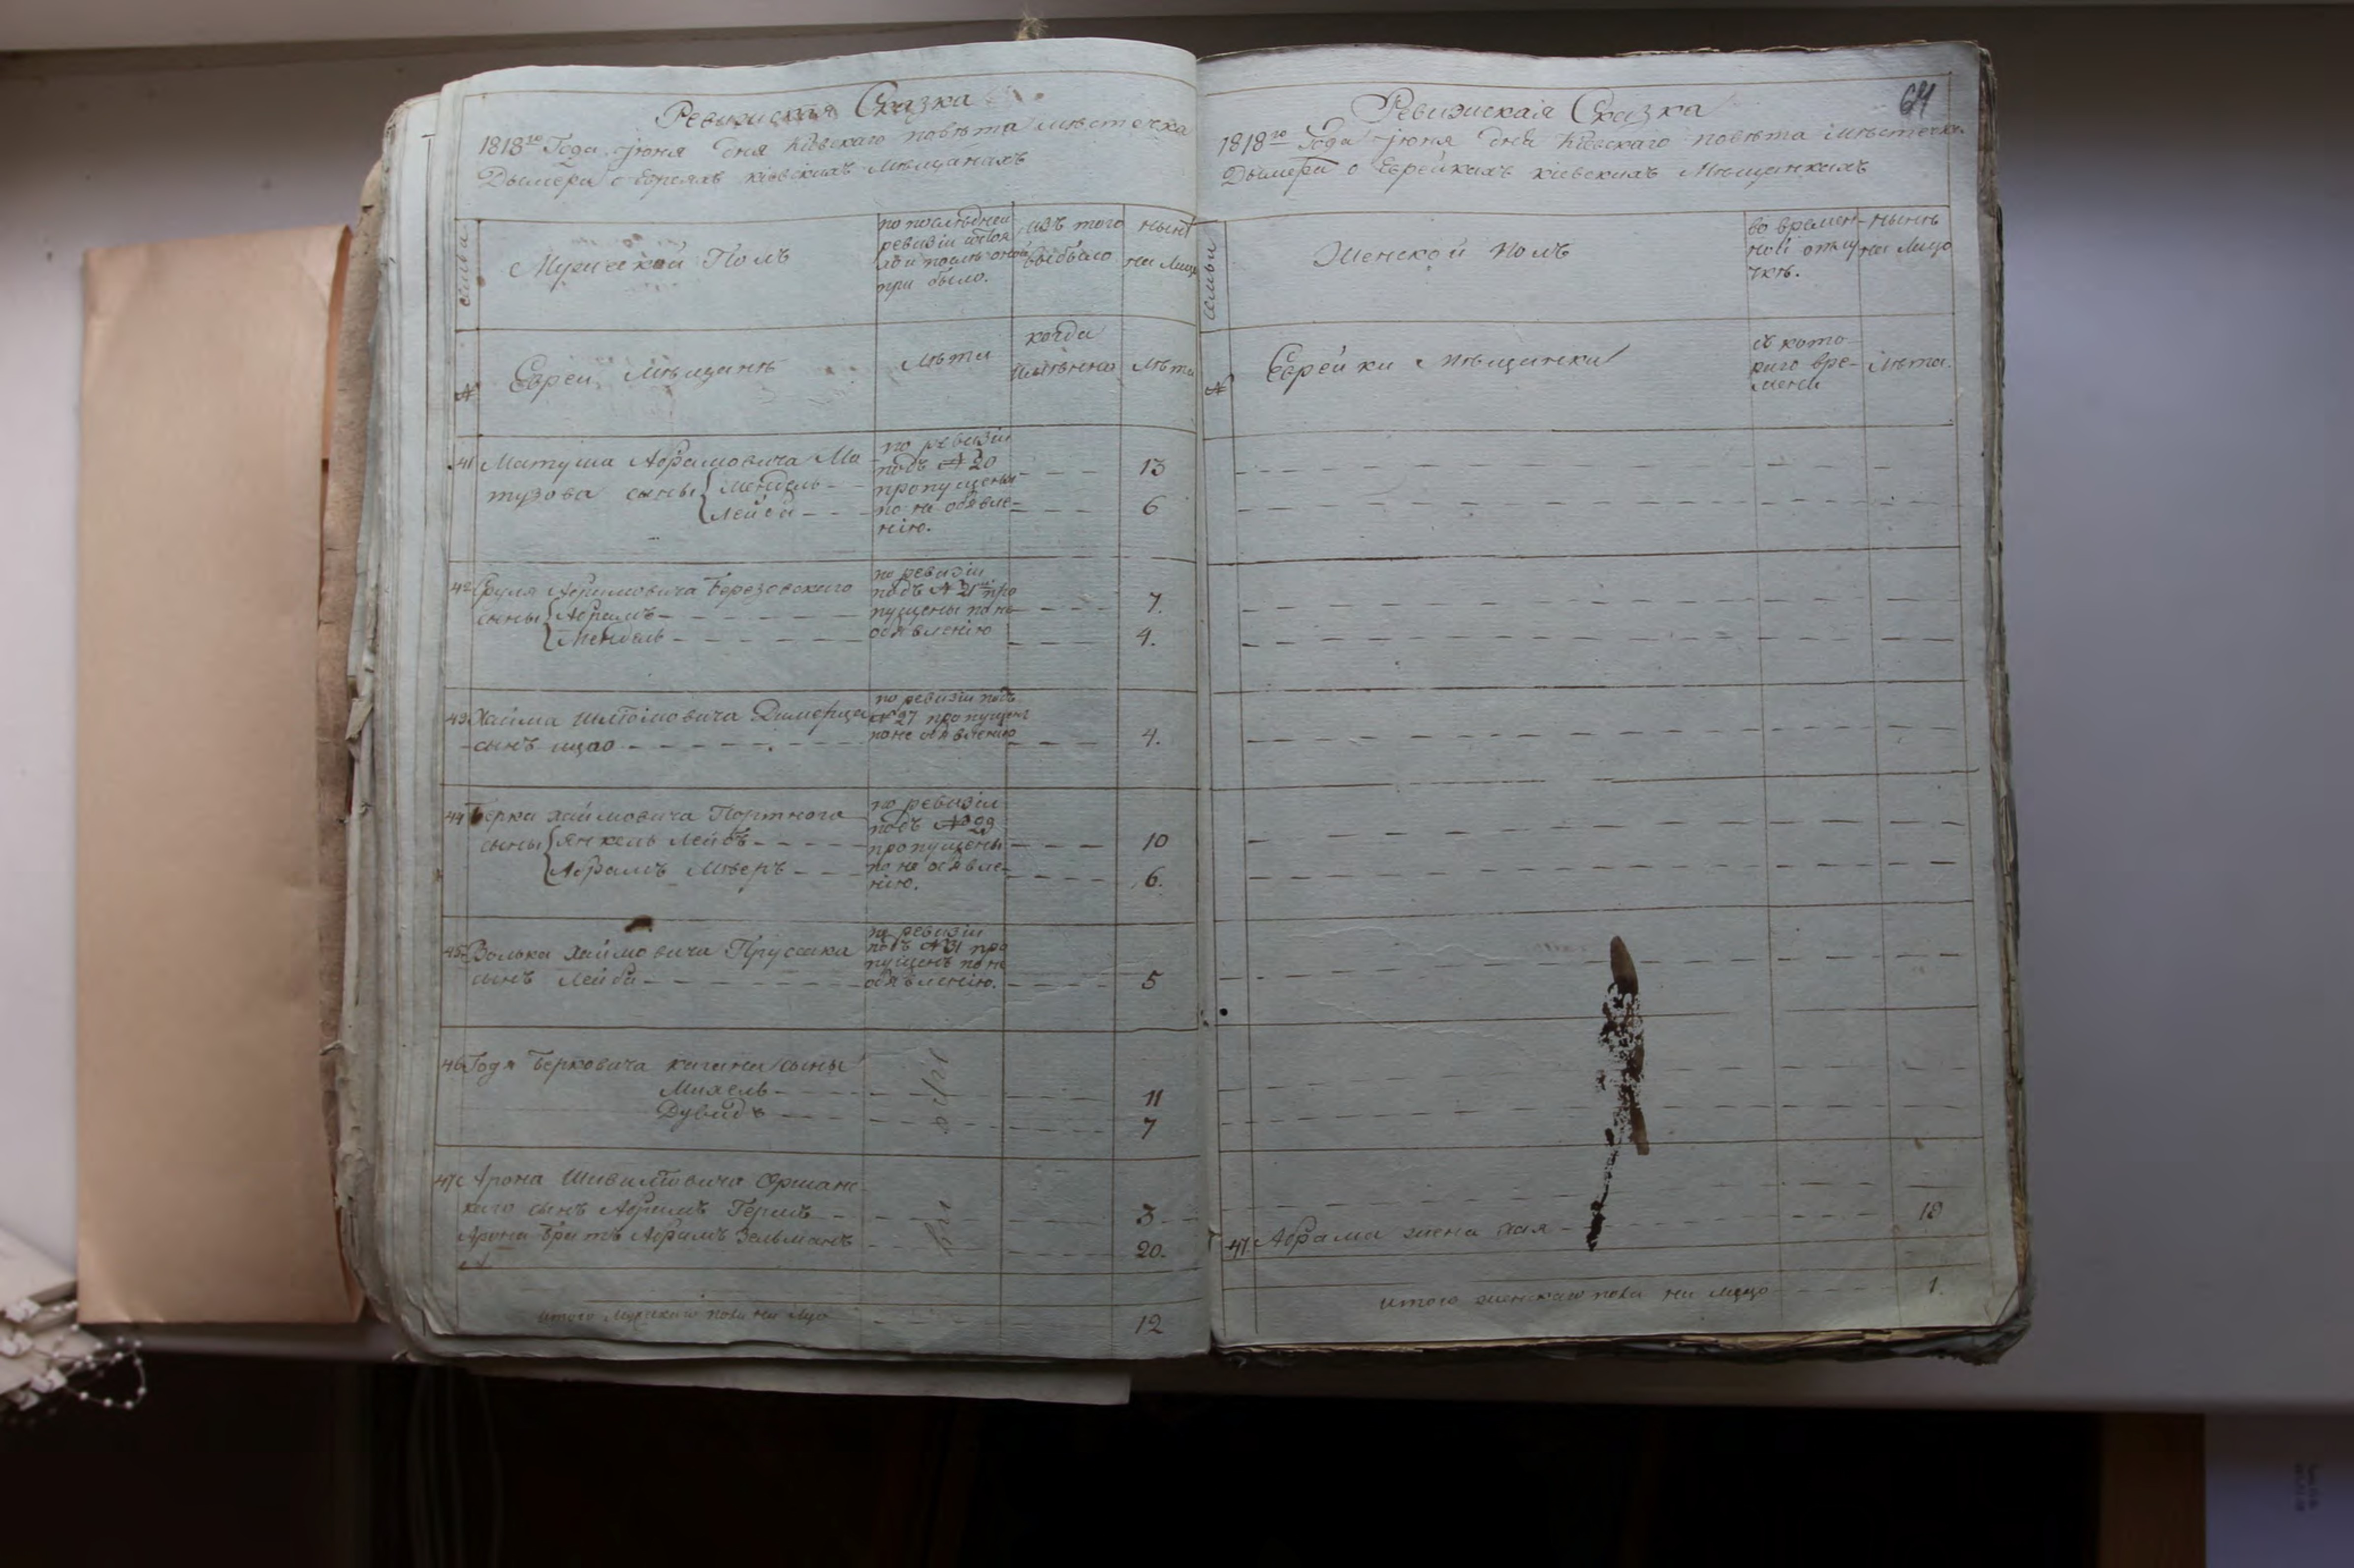 Ревизская Сказка
1818го Года июня дня Киевскаго повѣта мѣстечка
Дымера о Евреяхъ киевскихъ Мѣщанахъ
семьи
Мужеской Полъ
по послѣдней
ревизіи состоя
ло и послѣ оной
при было.
изъ того
выбыло
нынѣ
на лицо
№
Евреи Мѣщанѣ
Лѣта
когда
имянно
Лѣта
41 Матуша Абрамовича Ма
тузова сыны Мендель
Лейба
по ревизіи
подъ № 20
пропущены
по не объявле-
нію.
13
6
42 Сруля Абрамовича Березовскаго
сыны Абрамъ
Мендель
по ревизіи
подъ № 21 про
пущены по не
объявленію
7.
4.
43 Хаима Димерца
сынъ ицко
по ревизіи подъ
№ 27 пропущенъ
по не объявленію
4.
44 Берка Хаимовича Портнога
сыны Янкель Лейбъ
Абрамъ Мееръ
по ревизіи
подъ № 29
пропущены
по не объявле-
нію.
10
6.
45 Волька Хаимовича Прусака
сынъ Лейба
по ревизіи
подъ № 31 про
пущенъ по не
объявленію.
5
46 Годя Берковича кагана сыны
Михель
Дувидъ
11
7
47 Арона Оршанс
каго сынъ Абрамъ Гершъ
Арона братъ Абрамъ Зельманъ
3
20.
итого Мужскаго пола на лицо
12
64
Ревизская Сказка
1818го Года июня дня Киевскаго повѣта Мѣстечка
Дымера о Еврейкахъ киевскихъ Мѣщанкахъ
семьи
Женской полъ
во времен-
ной отлу-
чкѣ.
нынѣ
на лицо
№
Еврейки Мѣщанки
съ кото
раго вре-
мени
Лѣта.
47 Абрама жена Хая
18
итого женскаго пола на лицо
1.